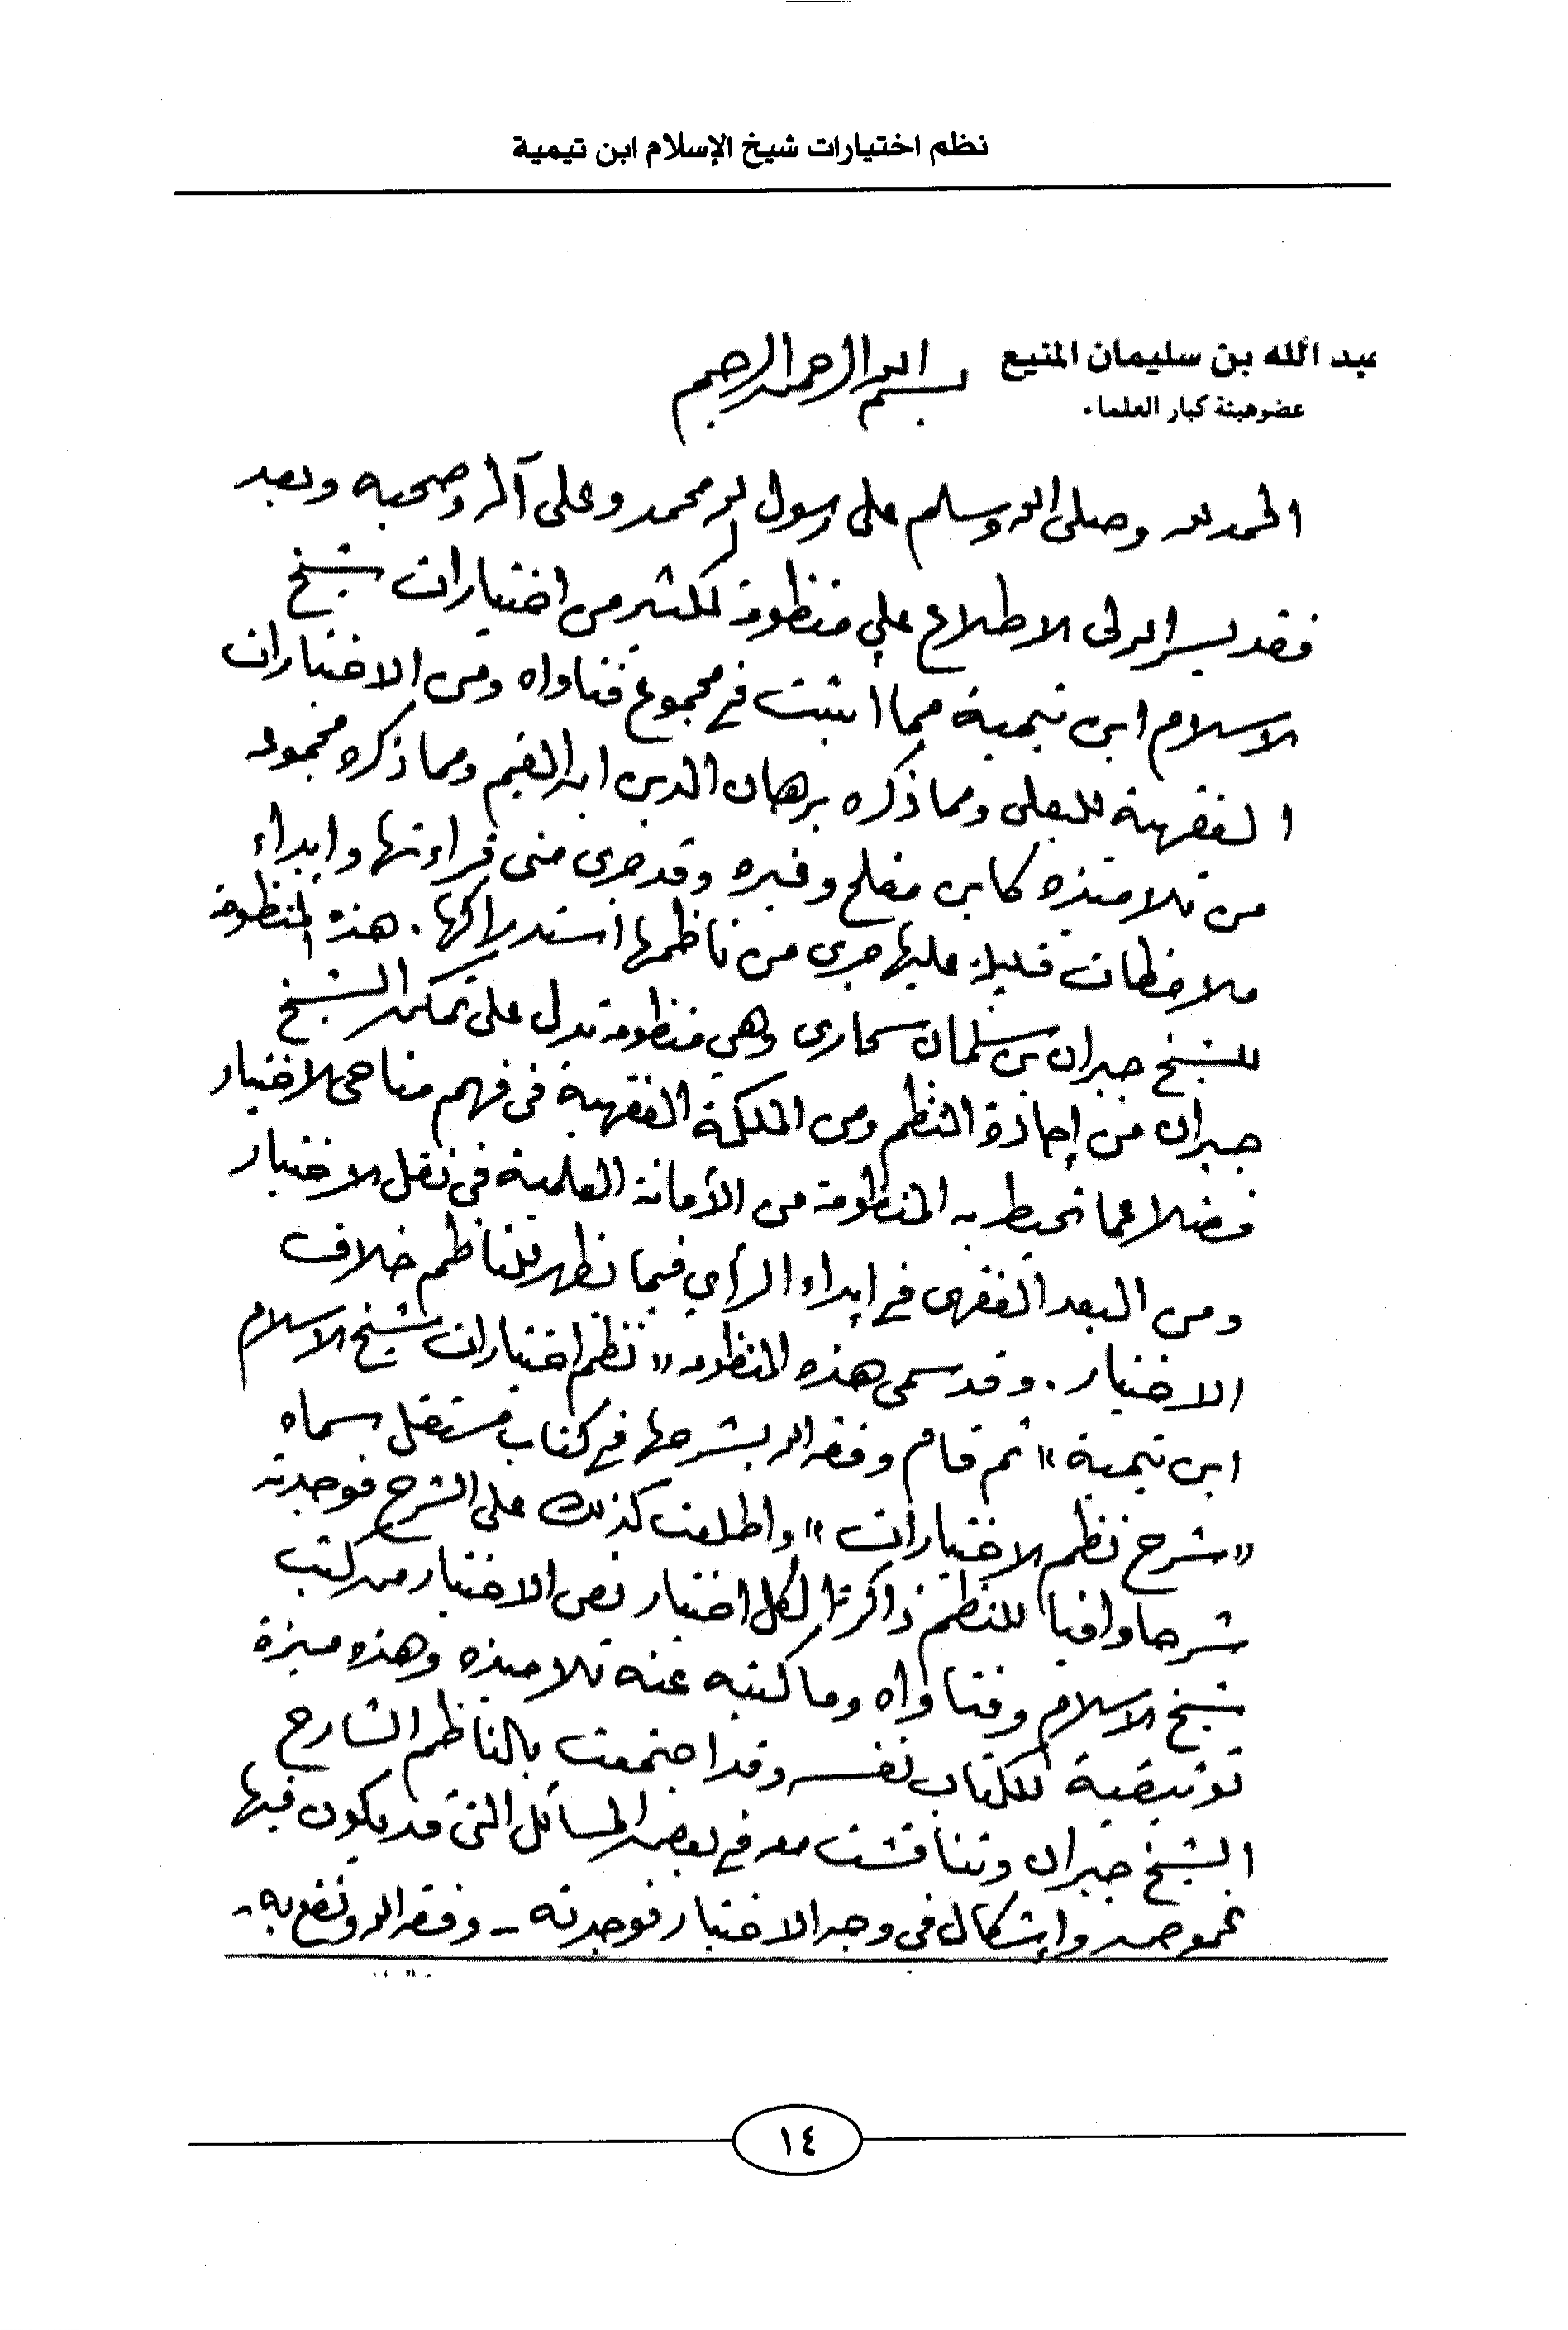 نظم اختيارات شيخ الإسلام ابن تيمية
عبد الله بن سليمان المنيع
عضو هيئة كبار العلماء
بسم الله الرحمن الرحيم
الحمد لله وصلى الله وسلم على رسول الله محمد وعلى آله وصحبه وبعد
فقد يسر الله لي الاطلاع على منظومة لكثير من اختيارات شيخ
الاسلام ابن تيمية مما أثبت في مجموع فتاواه ومن الاختيارات
الفقهية للبعلي ومما ذكره برهان الدين ابن القيم ومما ذكره مجموعة
من تلاميذه كابن مفلح وغيره وقد جرى مني قراءتها وإبداء
ملاحظات قليلة عليها جرى من ناظمها استدراكها . هذه المنظومة
للشيخ جبران بن سلمان سحاري وهي منظومة تدل على تمكن الشيخ
جبران من إجادة النظم ومن الملكة الفقهية في فهم مناحي الاختيار
فضلا عما تحيط به المنظومة من الأمانة العلمية في نقل الاختيار
ومن البعد الفقهي في إبداء الرأي فيما يظهر للناظم خلاف
الاختيار . وقد سمى هذه المنظومة "نظم اختيارات شيخ الاسلام
ابن تيمية" ثم قام وفقه الله بشرحها في كتاب مستقل سماه
"شرح نظم الاختيارات" واطلعت كذلك على الشرح فوجدته
شرحا وافيا للنظم ذاكرا لكل اختيار نص الاختيار من كتب
شيخ الاسلام وفتاواه وما كتبه عنه تلاميذه وهذه ميزة
توثيقية للكتاب نفسه وقد اجتمعت بالناظم الشارح
الشيخ جبران وتناقشت معه في بعض المسائل التي قد يكون فيها
غموض وإشكال في وجه الاختيار فوجدته - وفقه الله ونفع به -
١٤